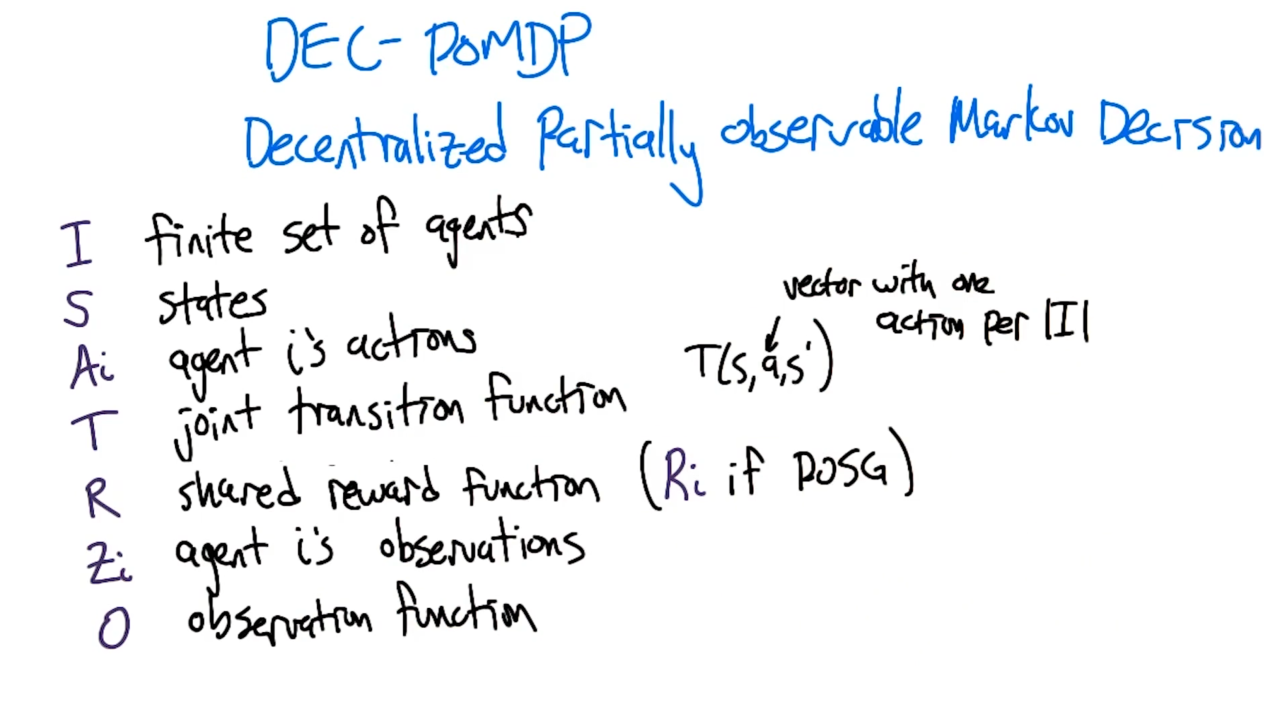 DEC-POMDP
Decentralized Partially observable Markov Decision
I finite set of agents
S states
Ai agent i's actions
T joint transition function
R shared reward function (Ri if POSG)
Zi agent i's observations
O observation function
vector with one
action per |I|
T(s,a,s')